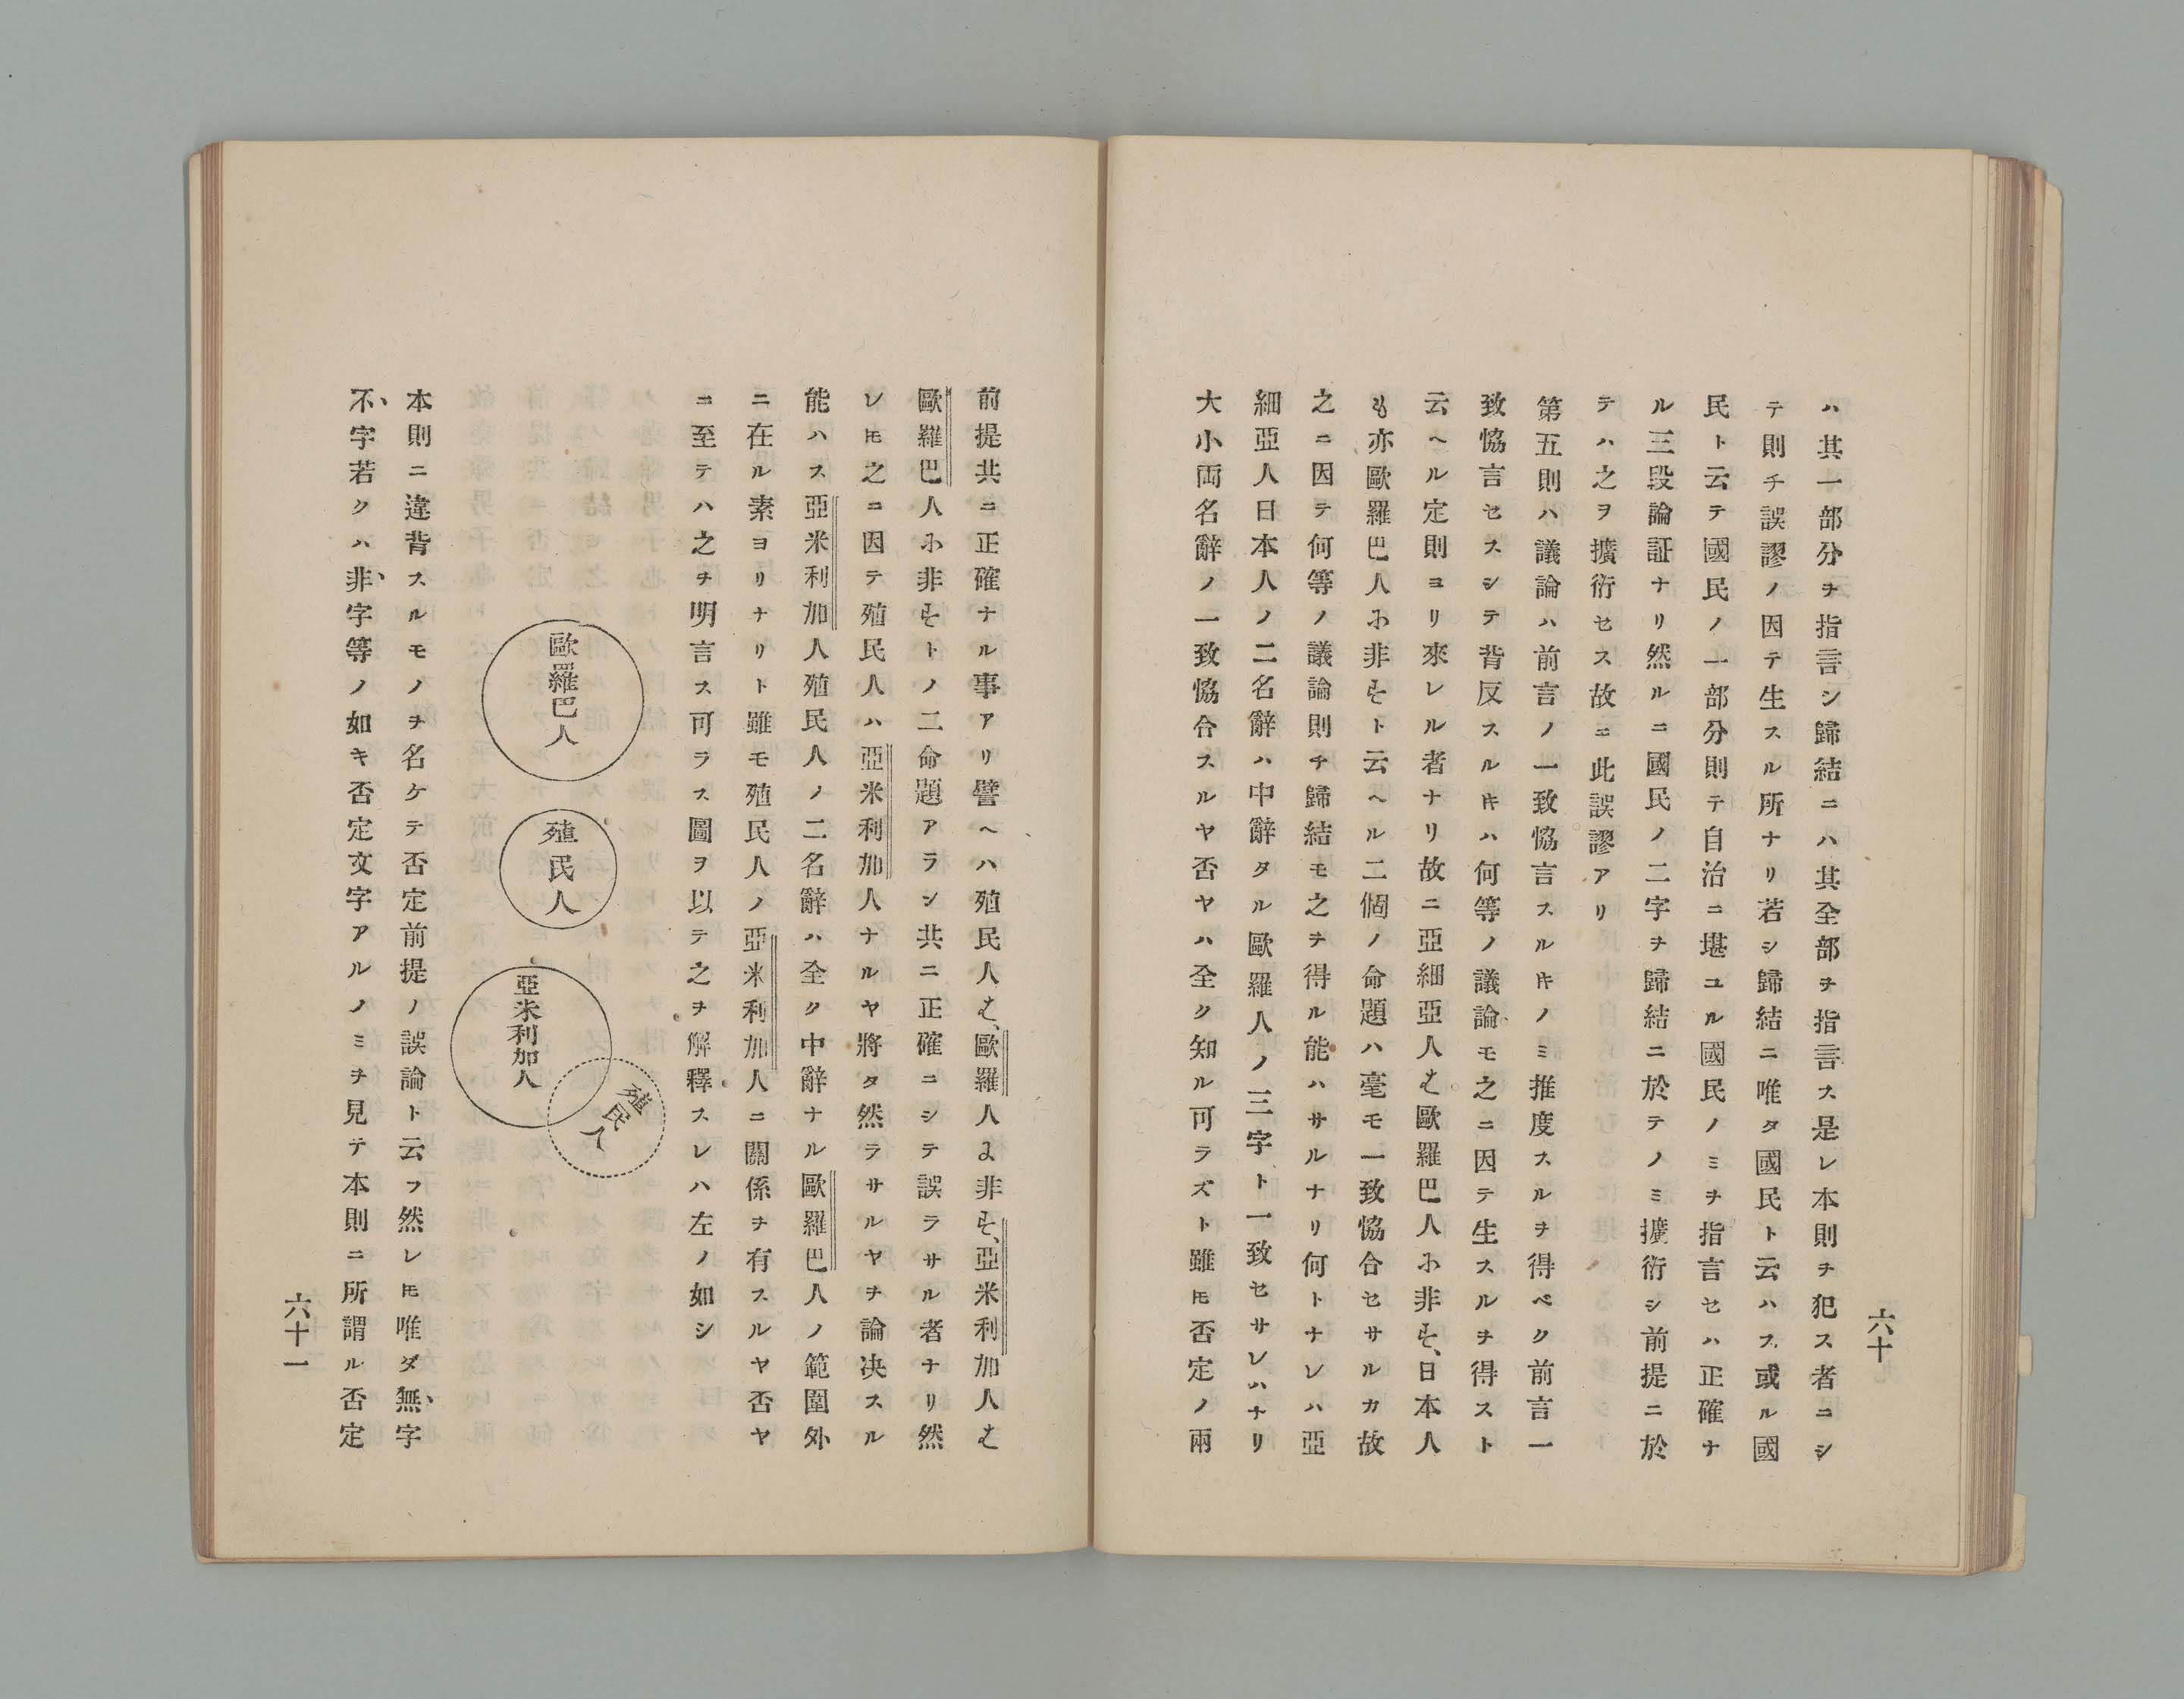 六十
ハ其一部分ヲ指言シ歸結ニハ其全部ヲ指言ス是レ本則ヲ犯ス者ニシ
テ則チ誤謬ノ因テ生スル所ナリ若シ歸結ニ唯タ國民ト云ハス或ル國
民ト云テ國民ノ一部分則テ自治ニ堪ユル國民ノミヲ指言セハ正確ナ
ル三段論証ナリ然ルニ國民ノ二字ヲ歸結ニ於テノミ擴衍シ前提ニ於
テハ之ヲ擴衍セス故ニ此誤謬アリ
第五則ハ議論ハ前言ノ一致恊言スルキノミ推度スルヲ得ベク前言一
致恊言セスシテ背反スルキハ何等ノ議論モ之ニ因テ生スルヲ得スト
云ヘル定則ヨリ來レル者ナリ故ニ亞細亞人は歐羅巴人に非ず、日本人
も亦歐羅巴人に非ずト云ヘル二個ノ命題ハ毫モ一致恊合セサルカ故
之ニ因テ何等ノ議論則チ歸結モ之ヲ得ル能ハサルナリ何トナレハ亞
細亞人日本人ノ二名辭ハ中辭タル歐羅人ノ三字ト一致セサレハナリ
大小両名辭ノ一致恊合スルヤ否ヤハ全ク知ル可ラズト雖𪜈否定ノ兩
前提共ニ正確ナル事アリ譬ヘハ殖民人は、歐羅人に非ず、亞米利加人は
歐羅巴人に非ずトノ二命題アラン共ニ正確ニシテ誤ラサル者ナリ然
レ𪜈之ニ因テ殖民人ハ亞米利加人ナルヤ將タ然ラサルヤヲ論决スル
能ハス亞米利加人殖民人ノ二名辭ハ全ク中辭ナル歐羅巴人ノ範圍外
ニ在ル素ヨリナリト雖モ殖民人ノ亞米利加人ニ關係ヲ有スルヤ否ヤ
ニ至テハ之ヲ明言ス可ラス圖ヲ以テ之ヲ解釋スレハ左ノ如シ
歐羅巴人
殖民人
亞米利加人
殖民人
本則ニ違背スルモノヲ名ケテ否定前提ノ誤論ト云フ然レ𪜈唯ダ無字
不字若クハ非字等ノ如キ否定文字アルノミヲ見テ本則ニ所謂ル否定
六十一